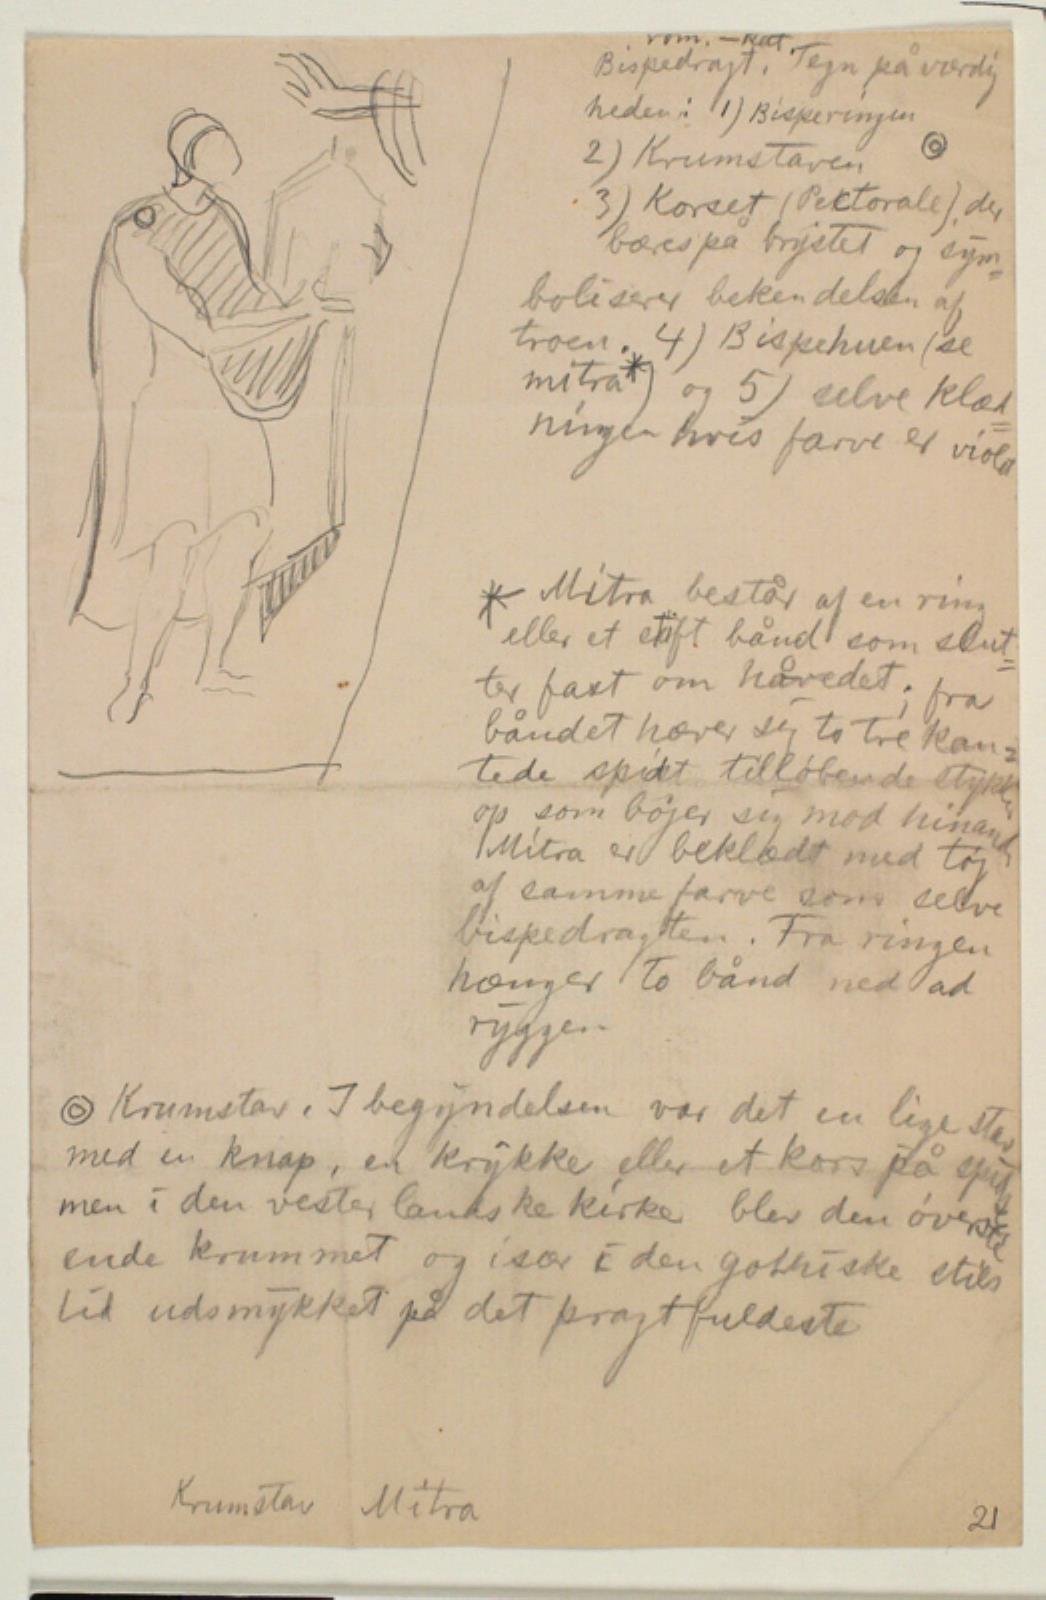 rom. – kat.
Bispedragt. Tegn på værdig
heden: 1) Bisperingen
2) Krumstaven
3) Korset (Pectorale), der
bæres på brystet og sym=
boliserer bekendelsen af
troen. 4) Bispehuen (se
mitra*) og 5) selve klæd=
ningen hvis farve er violet
* Mitra består af en ring
eller et stift bånd som slut=
ter fast om hovedet; fra
båndet hæver sig to tre kan=
tede spidst tilløbende stykker
op som bøjer sig mod hinanden
Mitra er beklædt med tøj
af samme farve som selve
bispedragten. Fra ringen
hænger to bånd ned ad
ryggen
Krumstav. I begyndelsen var det en lige stav
med en knap, en krykke eller et kors på spidsen
men i den vesterlandske kirke blev den øverste
ende krummet og især i den gothiske stils
tid udsmykket på det pragtfuldeste
Krumstav Mitra
21